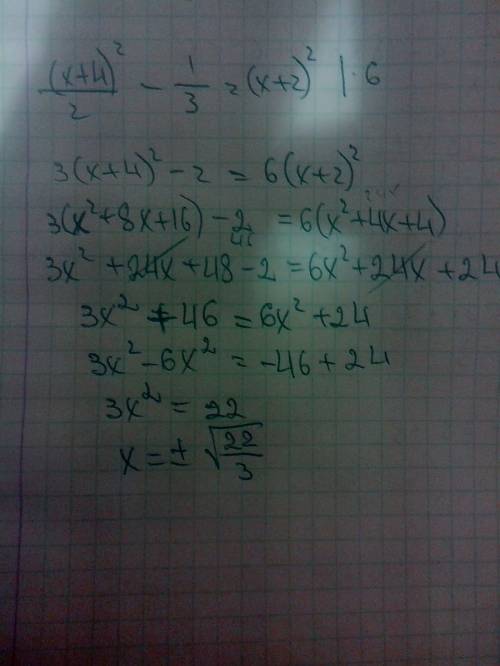 (x+4)²/2 - 1/3 = (x+2)² | · 6
3(x+4)² - 2 = 6(x+2)²
3(x²+8x+16) - 2 = 6(x²+4x+4)
3x² + 24x + 48 - 2 = 6x² + 24x + 24
3x² + 46 = 6x² + 24
3x² - 6x² = -46 + 24
3x² = 22
x = ± √(22/3)